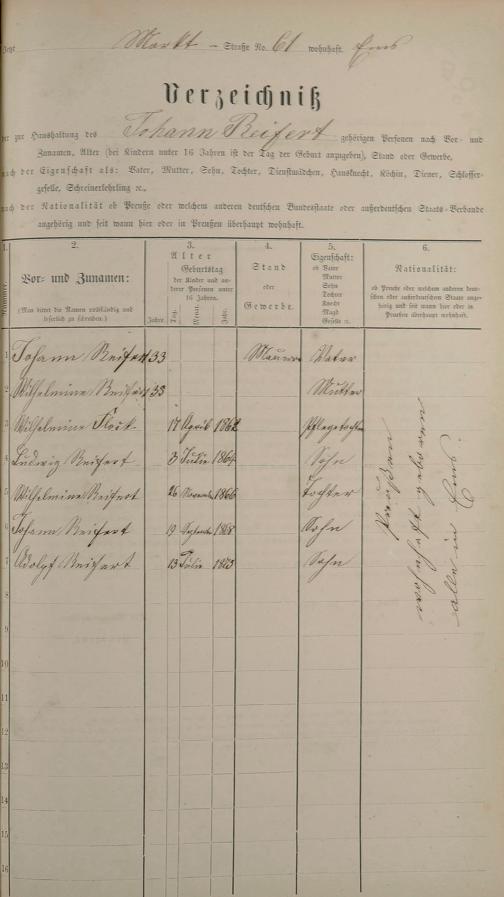 Jetzt Markt - Straße No. 61 wohnhaft. Ems
Verzeichniß
der zur Haushaltung des Johann Reifert gehörigen Personen nach Vor- und
Zunamen, Alter (bei Kindern unter 16 Jahren ist der Tag der Geburt anzugeben), Stand oder Gewerbe,
nach der Eigenschaft als: Vater, Mutter, Sohn, Tochter, Dienstmädchen, Hausknecht, Köchin, Diener, Schlosser-
geselle, Schreinerlehrling ꝛc.,
nach der Nationalität ob Preuße oder welchem anderen deutschen Bundesstaate oder außerdeutschen Staats-Verbande
angehörig und seit wann hier oder in Preußen überhaupt wohnhaft.
1. 2. 3. 4. 5. 6.
Nummer.
Vor- und Zunamen:
(Man bittet die Namen vollständig und
leserlich zu schreiben.)
Alter
Geburtstag
der Kinder und an-
derer Personen unter
16 Jahren.
Jahre. Tag. Monat. Jahr.
Stand
oder
Gewerbe.
Eigenschaft:
ob Vater
Mutter
Sohn
Tochter
Knecht
Magd
Geselle ꝛc.
Nationalität:
ob Preuße oder welchem anderen deut-
schen oder außerdeutschen Staate ange-
hörig und seit wann hier oder in
Preußen überhaupt wohnhaft.
1 Johann Reifert 33 Maurer Vater
2 Wilhelmine Reifert 33 Mutter
3 Wilhelmine 17 April 1862 Pflegetochter
4 Ludwig Reifert 3 Julie 1864 Sohn
5 Wilhelmine Reifert 26 Novemb 1866 Tochter
6 Johann Reifert 19 Septembe 1868 Sohn
7 Adolpf Reifert 13 Julie 1873 Sohn
Preußen
wohnhaft geboren
alle in Ems.
8
9
10
11
12
13
14
15
16